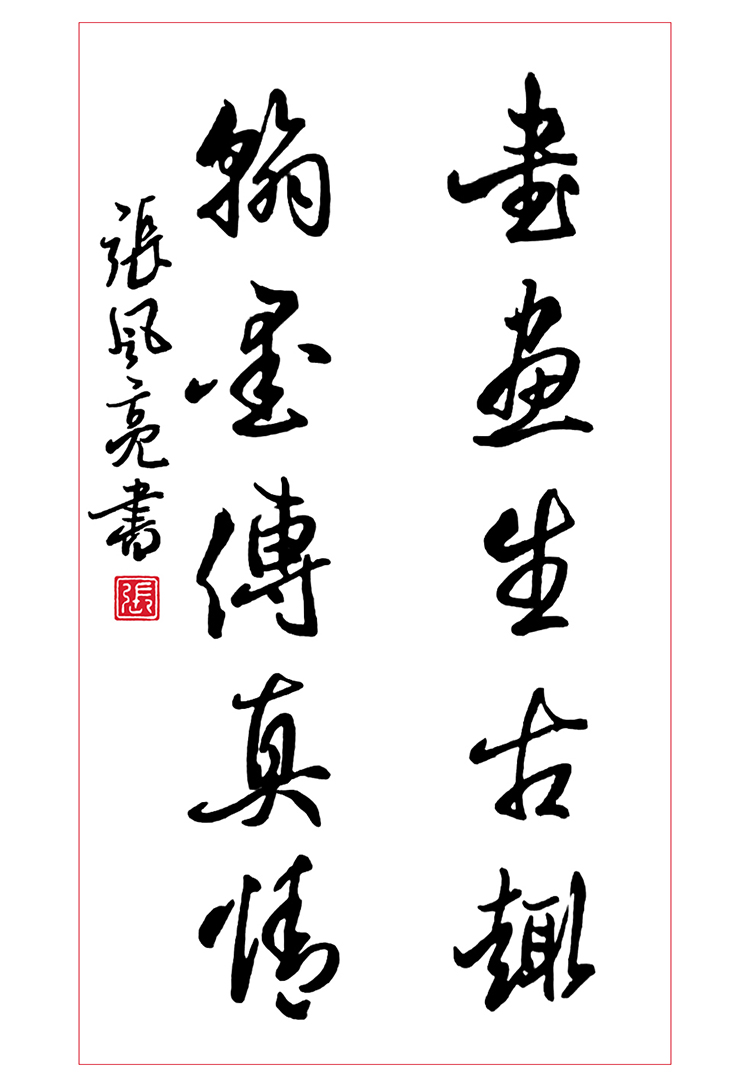 書畫生古趣
翰墨傳真情
張風亮書
張